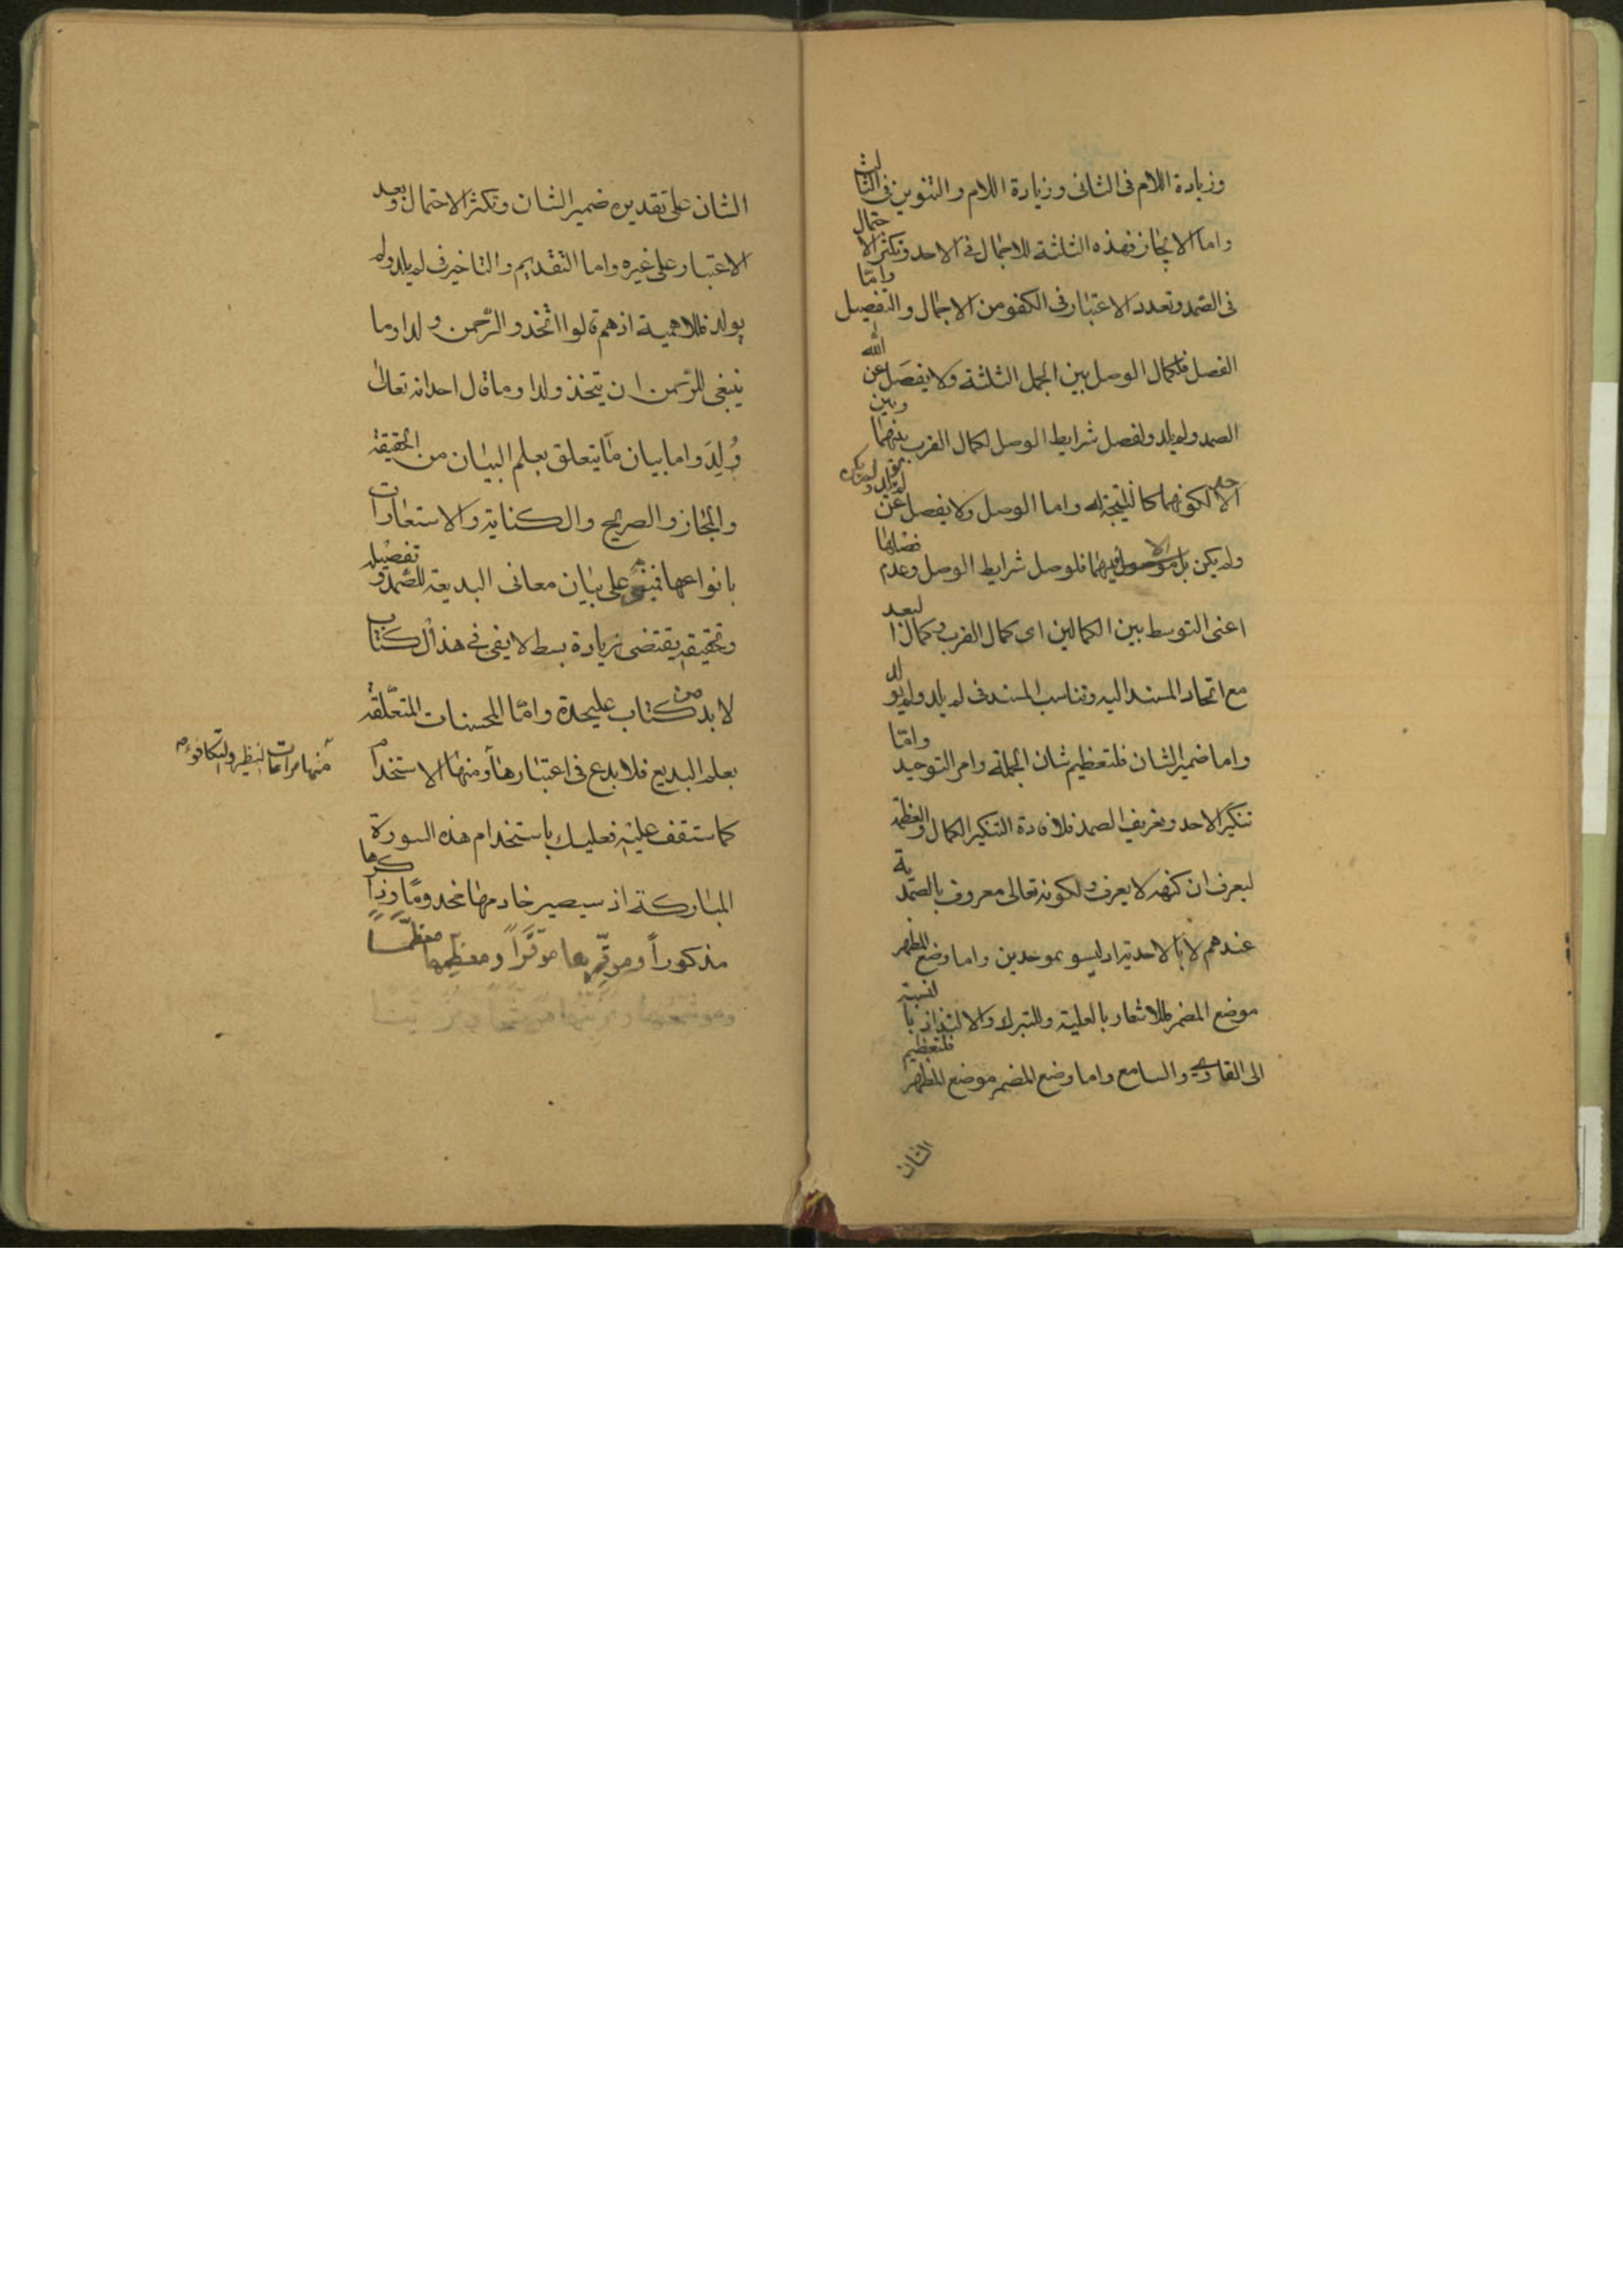 وزيادة اللام فى الثانى وزيادة اللام والتنوين فى الثالث
واما الايجاز فهذه الثلثة للاجمال فى الاحد وتكثر الاحتمال
فى الصمد وتعدد الاعتبار فى الكفو من الاجمال والتفصيل واما
الفصل فلكمال الوصل بين الجمل الثلثة ولا يفصل عن الله
الصمد ولم يلد ولفصل شرايط الوصل لكمال القرب بينهما وبين
الاحد لكونهما كالنتيجة له واما الوصل ولا يفصل عن لم يولد ولم يكن
ولم يكن بل فيهما فلوصل شرايط الوصل وعدم فضلها
اعنى التوسط بين الكمالين اى كمال القرب وكمال البعد
مع اتحاد المسند اليه وتناسب المسند فى لم يلد ولم يولد
واما ضمير الشان فلتعظيم شان الجملة وامر التوحيد واما
تنكير الاحد وتعريف الصمد فلافادة التنكير الكمال والعظمة
ليعرف ان كنهه لا يعرف ولكونه تعالى معروف بالصمدية
عندهم لا بالاحدية اذ ليسو بموحدين واما وضع المظهر
موضع المضمر فللاشعار بالعلية وللتبرك والالتذاذ بالنسبة
الى القارى والسامع واما وضع المضمر موضع المظهر فلتعظيم
الشان
الشان على تقديره ضمير الشان وتكثر الاحتمال وبعد
الاعتبار على غيره واما التقديم والتاخير فى لم يلد ولم
يولد فللاهمية اذ هم قالوا اتخذ الرحمن ولدا وما
ينبغى للرحمن ان يتخذ ولدا وما قال احد انه تعالى
وُلِدَ واما بيان ما يتعلق بعلم البيان من الحقيقة
والمجاز والصريح والكناية والاستعارات
بانواعها على بيان معانى البديعة للصمد وتفصيله
وتحقيقه يقتضى زيادة بسط لا يفى فى هذا الكتاب
لا بد من كتاب عليحدة واما المحسنات المتعلقة
بعلم البديع فلا بدع فى اعتبارها ومنها الاستخدام
منها مراعات النظير والتكافوء
كما ستقف عليه فعليك باستخدام هذه السورة
المباركة اذ سيصير خادمها مخدوماً وذاكرها
مذكوراً وموقّرها موقّراً ومعظّمها معظّماً